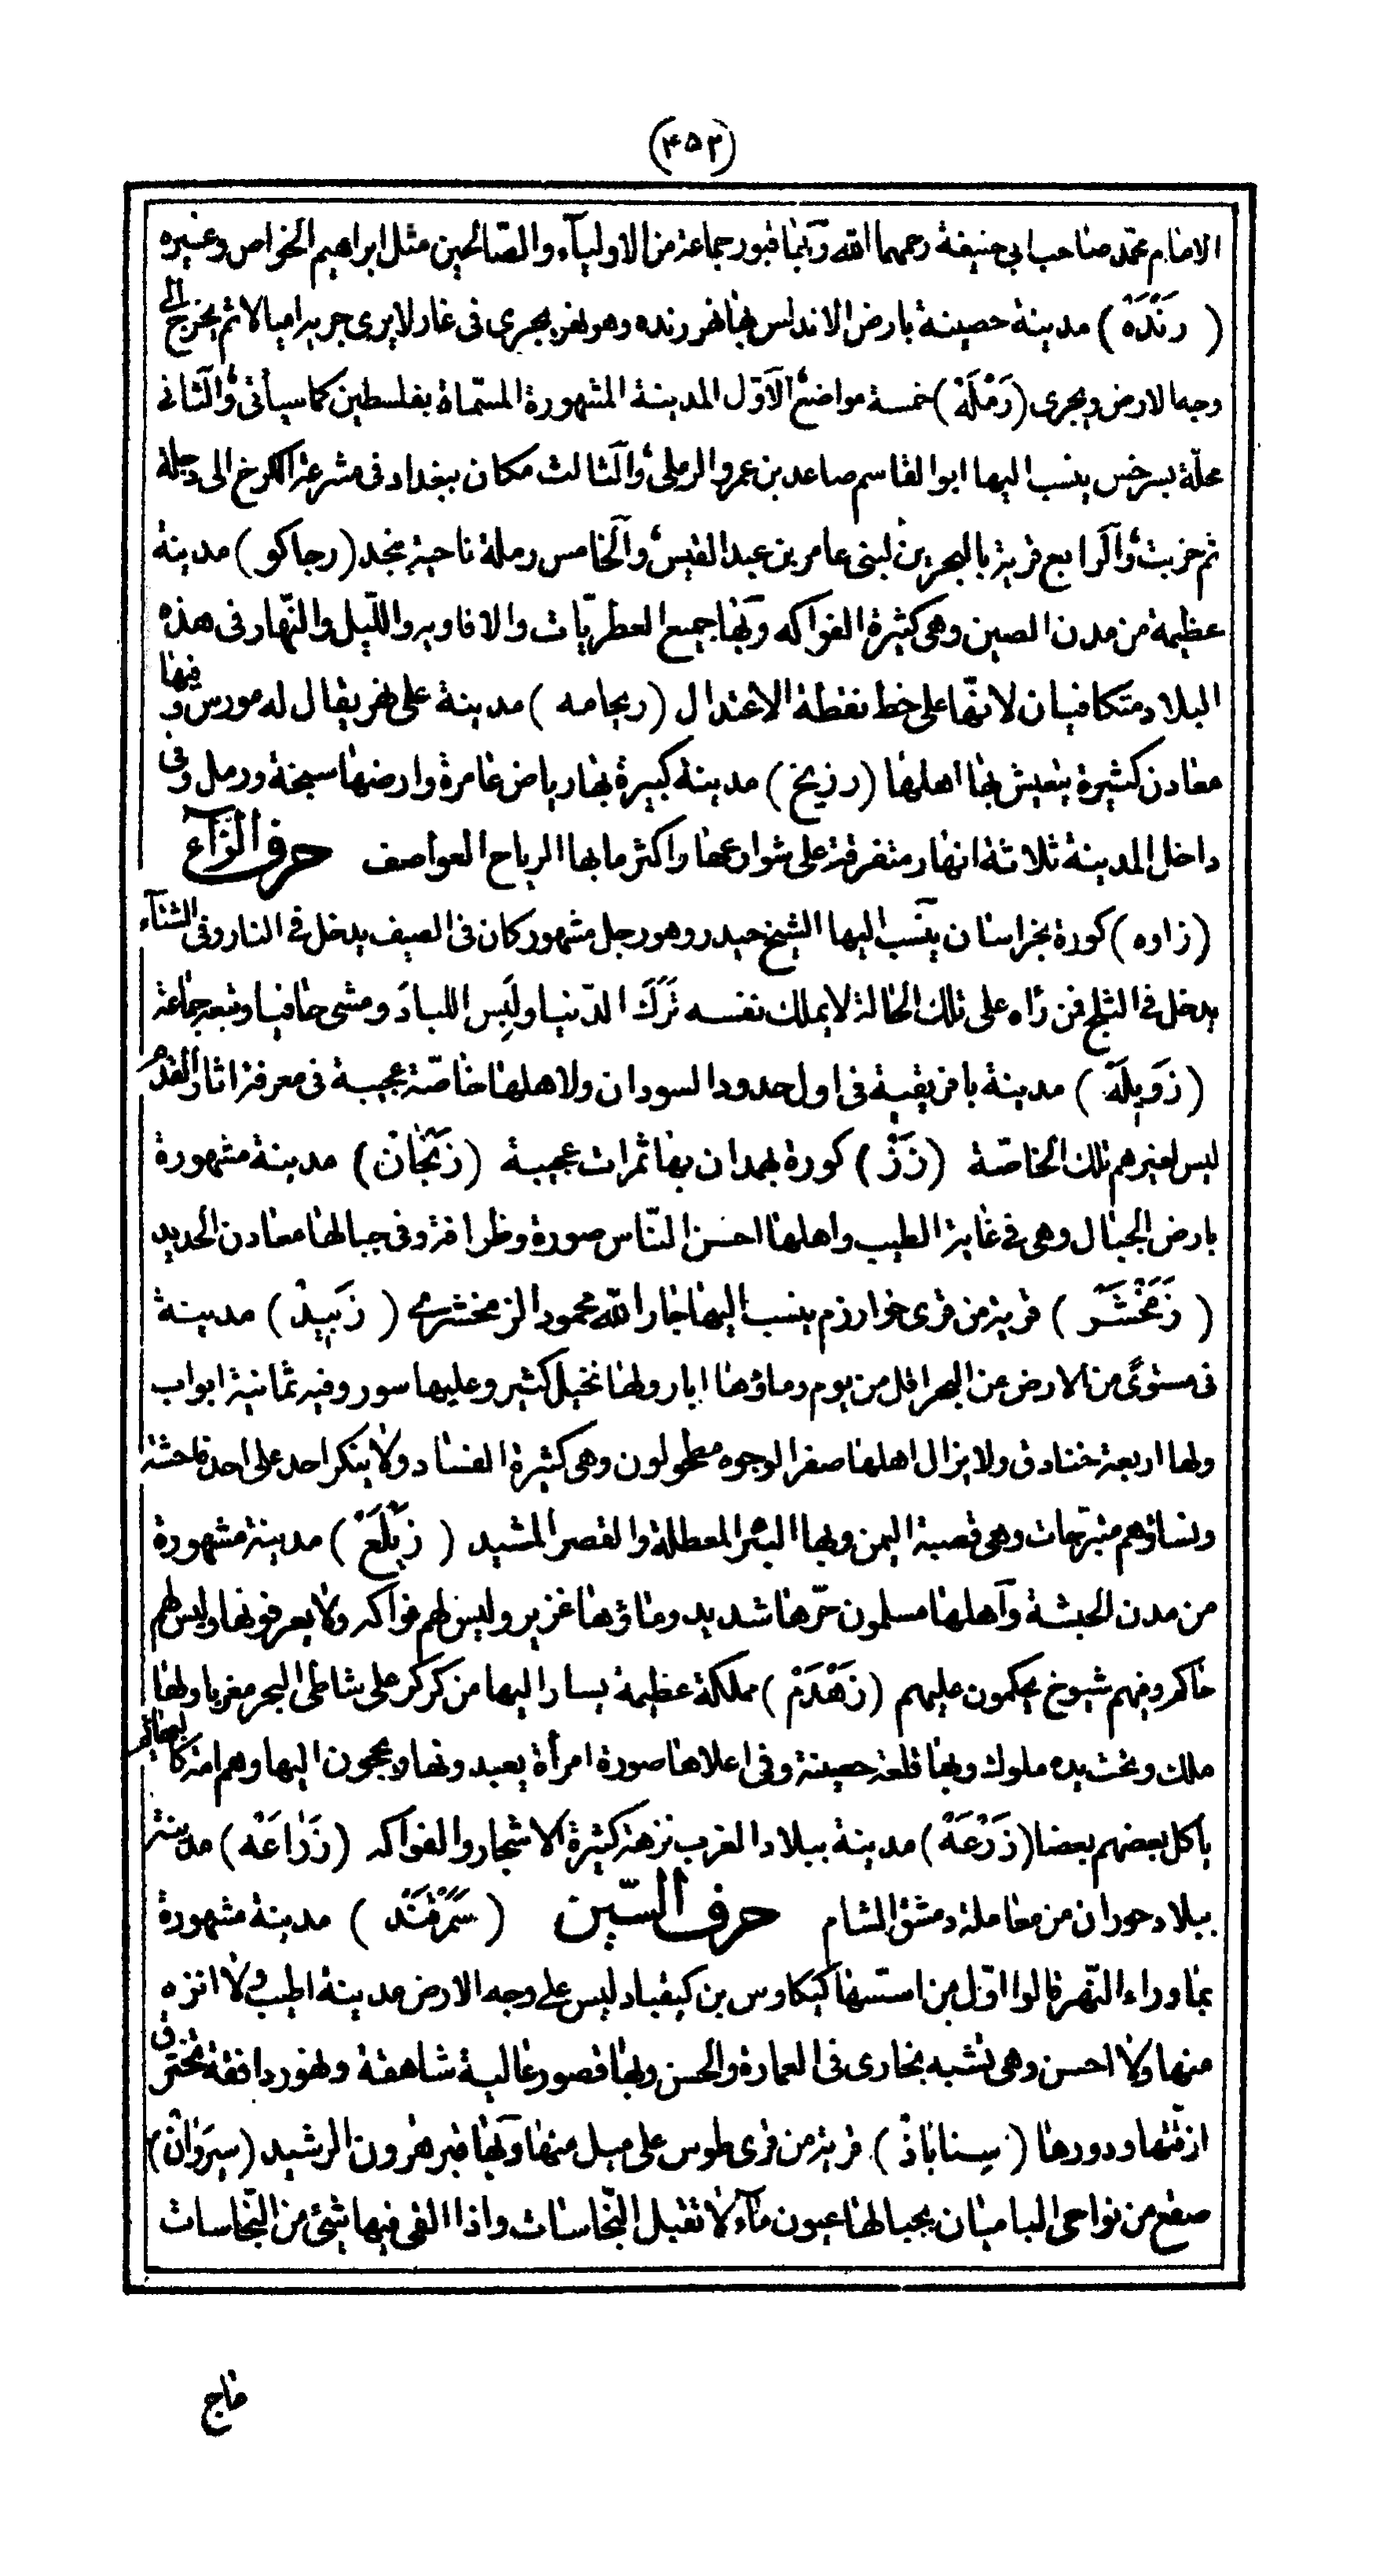 (٤٥٣)
الامام محمد صاحب ابى حنيفة رحمهما الله وبها قبور جماعة من الاوليآء والصّالحين مثل ابراهيم الخواص وغيره
( رَنْدَهْ ) مدينة حصينة بارض الاندلس بها نهر رنده وهو نهر يجرى فى غار لا يرى جريه اميالا ثم يخرج الى
وجه الارض ويجرى (رَمْلَهْ) خمسة مواضع الآوّل المدينة المشهورة المسمّاة بفلسطين كما سيأتى والّثانى
محلّة بسرخس ينسب اليها ابو القاسم صاعد بن عمرو الرملى والّثالث مكان ببغداد فى مشرعة الكرخ الى دجلة
ثم خربت والرابع قرية بالبحرين لبنى عامر بن عبد القيس والخامس رملة ناحية بنجد (رجاكو) مدينة
عظيمة من مدن الصين وهى كثيرة الفواكه وبها جميع العطريّات والافاويه والليل والنّهار فى هذه
البلاد متكافيان لانّها على خط نقطة الاعتدال (ريحامه) مدينة على نهر يقال له مورس وفيها
معادن كثيرة يتعيش بها اهلها (رزيخ) مدينة كبيرة بها رياض عامرة وارضها سبخة ورمل وفى
داخل المدينة ثلاثة انهار متفرقة على شوارعها واكثر ما بها الرياح العواصف حرف الزّآء
(زاوه) كورة بخراسان ينسب اليها الشيخ حيدر وهو رجل مشهور كان فى الصيف يدخل فى النار وفى الشتآء
يدخل فى الثلج فمن رآه على تلك الحالة لا يملك نفسه تَرَكَ الدّنيا ولَبِس اللبادَ ومشى حافيا وتبعه جماعة
(زَوِيلَهْ) مدينة بافريقية فى اول حدود السودان ولاهلها خاصّة عجيبة فى معرفة اثار القدم
ليس لغيرهم تلك الخاصّة (زَزْ) كورة بهمدان بها ثمرات عجيبة (زَنْجَانْ) مدينة مشهورة
بارض الجبال وهى فى غاية الطيب واهلها احسن النّاس صورة وظرافة وفى جبالها معادن الحديد
( زَمَخْشَرْ ) قرية من قرى خوارزم ينسب اليها جار الله محمود الزمخشرى ( زَبِيدْ ) مدينة
فى مستوىً من الارض عن البحر اقل من يوم وماؤها ابار ولها نخيل كثير وعليها سور وفيه ثمانية ابواب
ولها اربعة خنادق ولا يزال اهلها صفر الوجوه مطحولون وهى كثيرة الفساد ولا ينكر احد على احد فاحشة
ونساؤهم متبرّجات وهى قصبة اليمن وبها البئر المعطلة والقصر المشيد ( زَيْلَعْ ) مدينة مشهورة
من مدن الحبشة وآهلها مسلمون حرّها شديد وماؤها غزير وليس لهم فواكه ولا يعرفونها وليس لهم
حاكم وفيهم شيوخ يحكمون عليهم (زَهْدَمْ) مملكة عظيمة يسار اليها من كركر على شاطئ البحر مغربا ولها
ملك وتحت يده ملوك وبها قلعة حصينة وفى اعلاها صورة امرأة يعبدونها ويحجون اليها وهم امة كالبهائم
ياكل بعضهم بعضا (زَرْعَهْ) مدينة ببلاد الغرب نزهة كثيرة الاشجار والفواكه (زَرَاعَهْ) مدينة
ببلاد حوران من معاملة دمشق الشام حرف السّين ( سَمَرْقَنَدْ ) مدينة مشهورة
بما وراء النّهر قالوا اوّل من اسّسها كيكاوس بن كيقباد ليس على وجه الارض مدينة اطيب ولا انزه
منها ولا احسن وهى تشبه بخارى فى العمارة والحسن وبها قصور عالية شاهقة ونهور دافقة تخترق
ازقّتها ودورها (سِنابَاذْ) قرية من قرى طوس على ميل منها وبها قبر هرون الرشيد (سيروانْ)
صقع من نواحى الباميان بجبالها عيون مآء لا تقبل النّجاسات واذا القى فيها شئ من النّجاسات
ماج